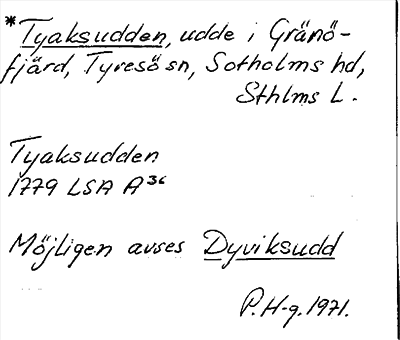 *Tyaksudden, udde i Gränö-
fjärd, Tyresö sn, Sotholms hd,
Sthlms L.
Tyaksudden
1779 LSA A³⁶
Möjligen avses Dyviksudd
P.H-g. 1971.